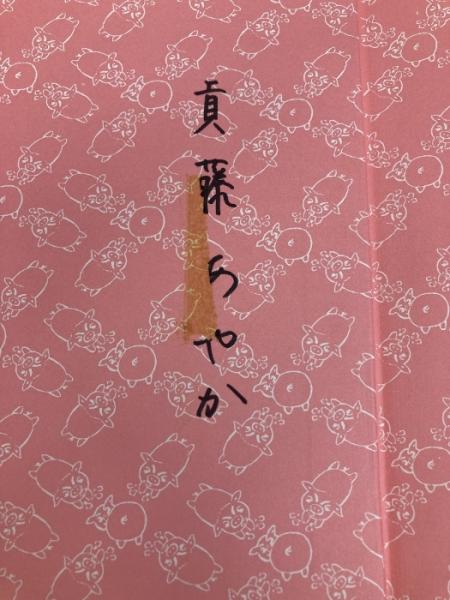 貢藤あやか